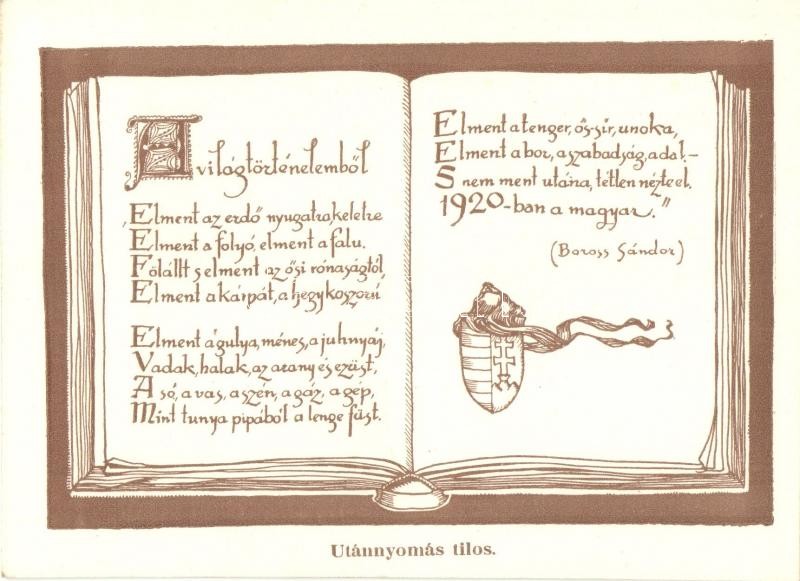 A világtörténelemből
„Elment az erdő nyugatra, keletre
Elment a folyó, elment a falu.
Fölállt s elment az ősi rónaságtól,
Elment a kárpát, a hegykoszorú
Elment a gulya, ménes, a juhnyáj,
Vadak, halak, az arany és ezüst,
A só, a vas, a szén, a gáz, a gép,
Mint tunya pipából a lenge füst.
Elment a tenger, ős-sír, unoka,
Elment a bor, a szabadság, a dal. –
S nem ment utána, tétlen nézte el.
1920-ban a magyar."
(Boross Sándor)
Utánnyomás tilos.